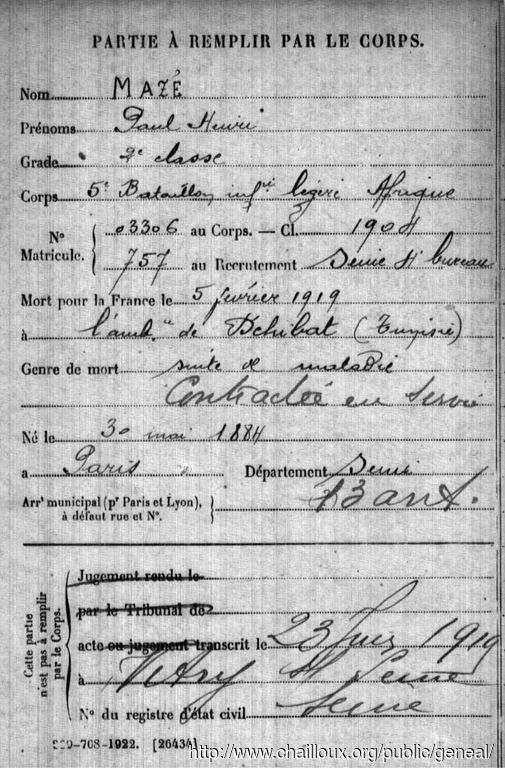 PARTIE À REMPLIR PAR LE CORPS.
Nom MAZÉ
Prénoms Paul Henri
Grade 2e classe
Corps 5e Bataillon infrie légère Afrique
No Matricule. 03306 au Corps. — Cl. 1904
757 au Recrutement Seine 4e bureau
Mort pour la France le 5 février 1919
à l'amb.ce de Dehibat (Tunisie)
Genre de mort suite de maladie
Contractée en service
Né le 30 mai 1884
à Paris Département Seine
Arrt municipal (pr Paris et Lyon), à défaut rue et No. 13 arrt.
Cette partie n'est pas à remplir par le Corps.
Jugement rendu le
par le Tribunal de
acte ou jugement transcrit le 23 1919
à Vitry s/ Seine
No du registre d'état civil Seine
-708-1922. [26434]
http://www.chailloux.org/public/geneal/